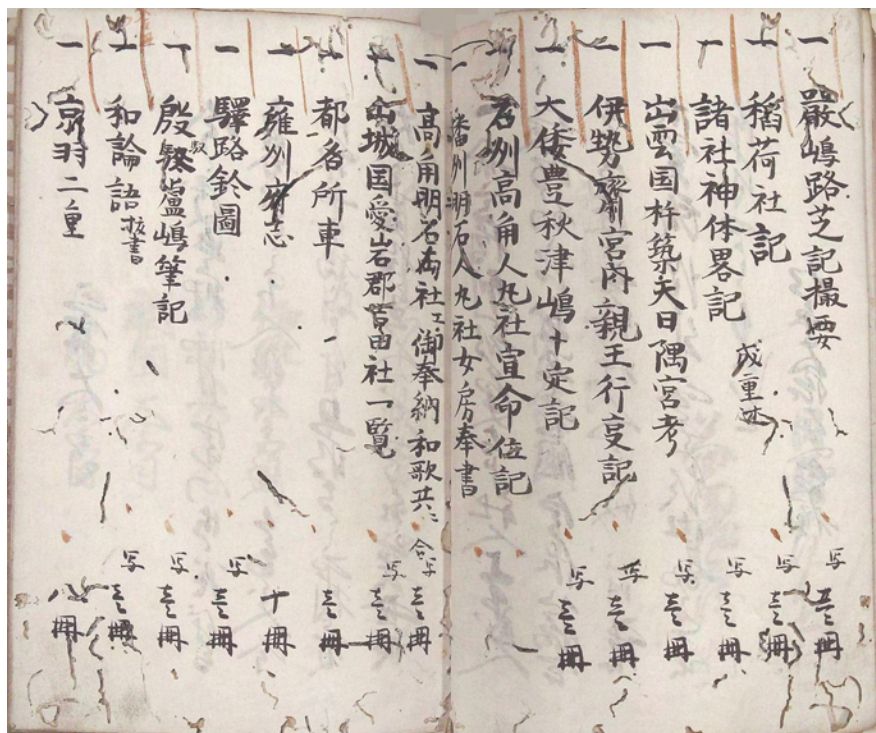 一 嚴嶋路芝記撮要 写 壱冊
一 稲荷社記 写 壱冊
一 諸社神体畧記 成重述 写 壱冊
一 出雲国杵築天日隅宮考 写 壱冊
一 伊勢齋宮内親王行事記 写 壱冊
一 大倭豊秋津嶋卜定記 写 壱冊
一 石州高角人丸社宣命位記
一 播州明石人丸社女房奉書
一 高角明石両社江御奉納和歌共ニ 合写 壱冊
一 山城国愛宕郡吉田社一覧 写 壱冊
一 都名所車 壱冊
一 雍州府志 十冊
一 驛路鈴圖 写 壱冊
一 殷馭盧嶋筆記 写 壱冊
一 和論語抜書 写 壱冊
一 京羽二重 八冊